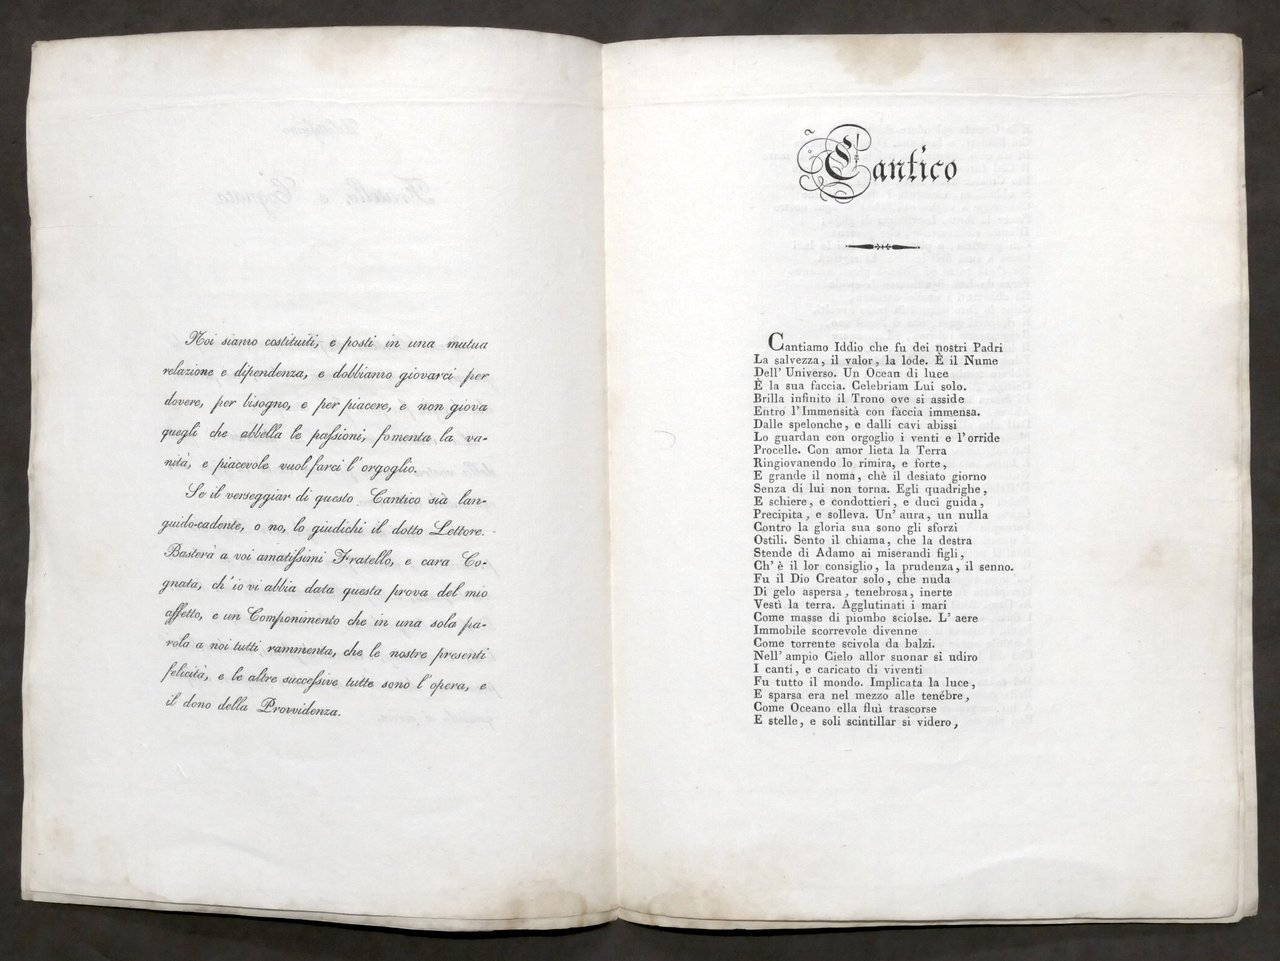 Noi siamo costituiti, e posti in una mutua
relazione e dipendenza, e dobbiamo giovarci per
dovere, per bisogno, e per piacere, e non giova
quegli che abbella le paſsioni, fomenta la va-
nità, e piacevole vuol farci l'orgoglio.
Se il verseggiar di questo Cantico sia lan-
guido-cadente, o no, lo giudichi il dotto Lettore.
Basterà a voi amatiſsimi Fratello, e cara Co-
gnata, ch'io vi abbia data questa prova del mio
affetto, e un Componimento che in una sola pa-
rola a noi tutti rammenta, che le nostre presenti
felicità, e le altre succeſsive tutte sono l'opera, e
il dono della Provvidenza.
Cantico
Cantiamo Iddio che fu dei nostri Padri
La salvezza, il valor, la lode. È il Nume
Dell' Universo. Un Ocean di luce
È la sua faccia. Celebriam Lui solo.
Brilla infinito il Trono ove si asside
Entro l'Immensità con faccia immensa.
Dalle spelonche, e dalli cavi abissi
Lo guardan con orgoglio i venti e l'orride
Procelle. Con amor lieta la Terra
Ringiovanendo lo rimira, e forte,
E grande il noma, chè il desiato giorno
Senza di lui non torna. Egli quadrighe,
E schiere, e condottieri, e duci guida,
Precipita, e solleva. Un' aura, un nulla
Contro la gloria sua sono gli sforzi
Ostili. Sento il chiama, che la destra
Stende di Adamo ai miserandi figli,
Ch' è il lor consiglio, la prudenza, il senno.
Fu il Dio Creator solo, che nuda
Di gelo aspersa, tenebrosa, inerte
Vestì la terra. Agglutinati i mari
Come masse di piombo sciolse. L' aere
Immobile scorrevole divenne
Come torrente scivola da balzi.
Nell' ampio Cielo allor suonar si udiro
I canti, e caricato di viventi
Fu tutto il mondo. Implicata la luce,
E sparsa era nel mezzo alle tenébre,
Come Oceano ella fluì trascorse
E stelle, e soli scintillar si videro,